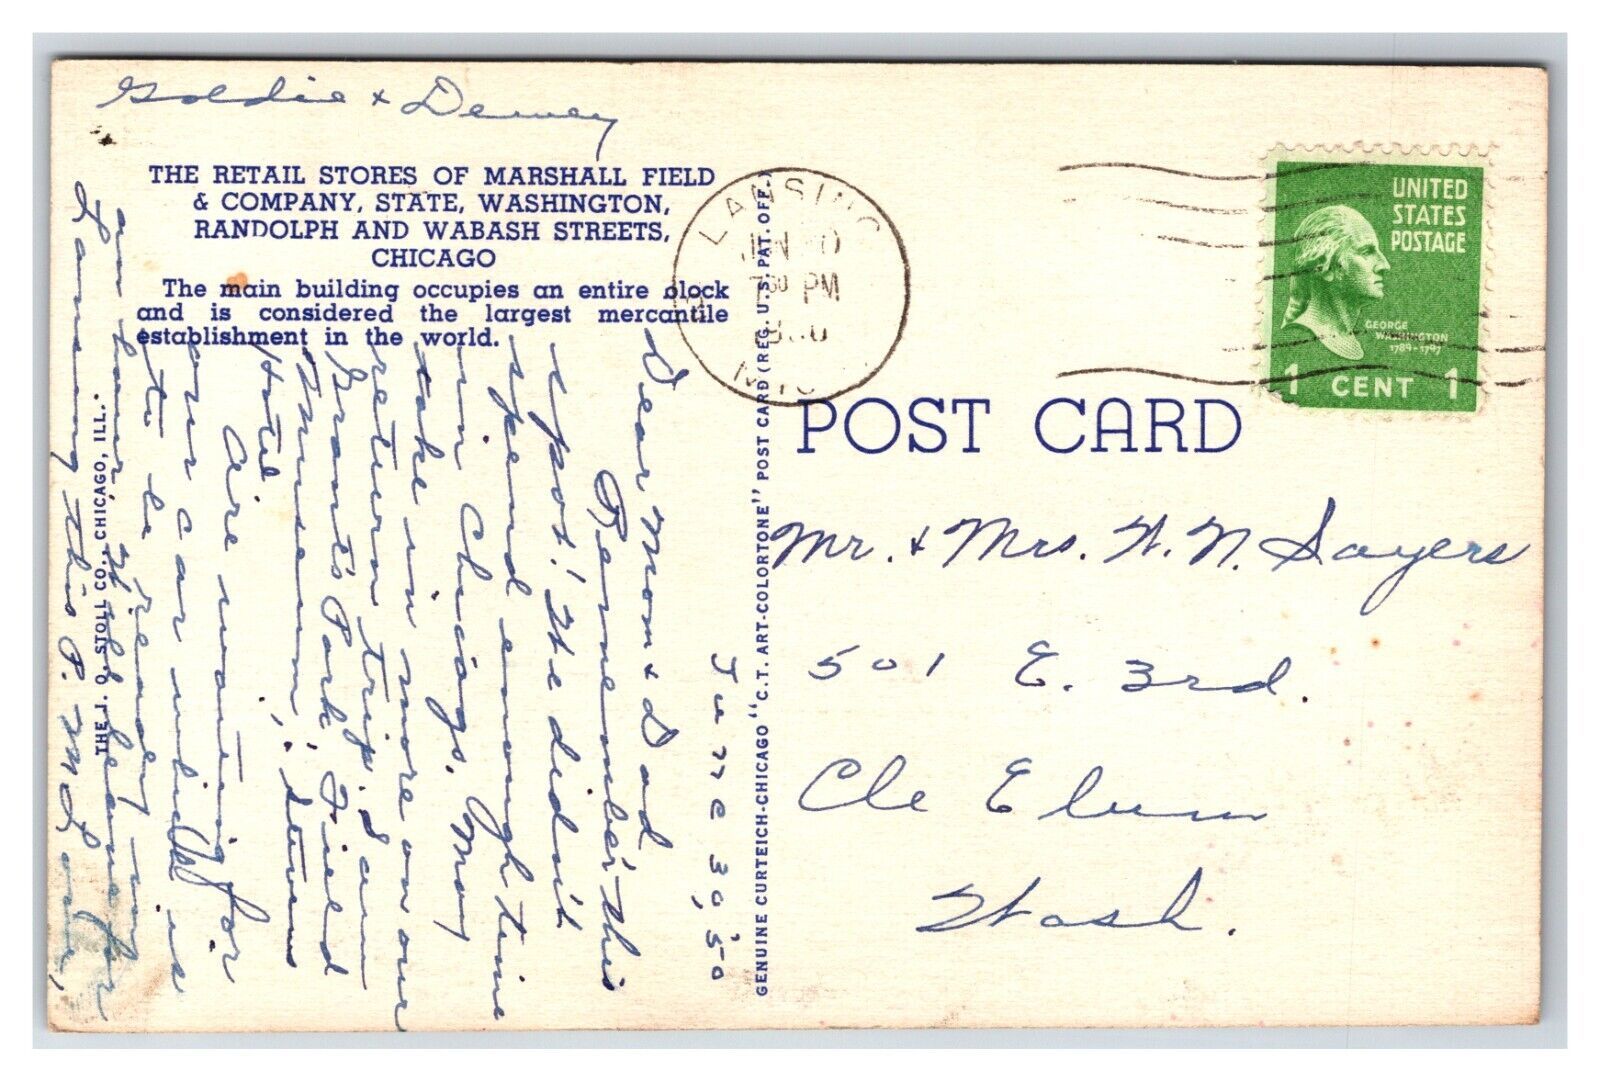 Goldie & Dewey
THE RETAIL STORES OF MARSHALL FIELD
& COMPANY, STATE, WASHINGTON,
RANDOLPH AND WABASH STREETS,
CHICAGO
The main building occupies an entire block
and is considered the largest mercantile
establishment in the world.
THE J. O. STOLL CO., CHICAGO, ILL.
June 30, '50
Dear Mom & Dad
Remember this
spot! We didn't
spend enough time
in Chicago. May
take in more on our
return trip. I am
Grant's Park; Field
Museum; Stevens
Hotel
Are waiting for
our car which is
to be ready in
an hour. Will leave for
Lansing this P.M. Love,
GENUINE CURTEICH-CHICAGO "C.T. ART-COLORTONE" POST CARD (REG. U.S. PAT. OFF.)
LANSING
7 30 PM
POST CARD
UNITED
STATES
POSTAGE
GEORGE
WASHINGTON
1789-1797
1 CENT 1
Mr. & Mrs. H. N. Sayers
501 E. 3rd.
Cle Elum
Wash.